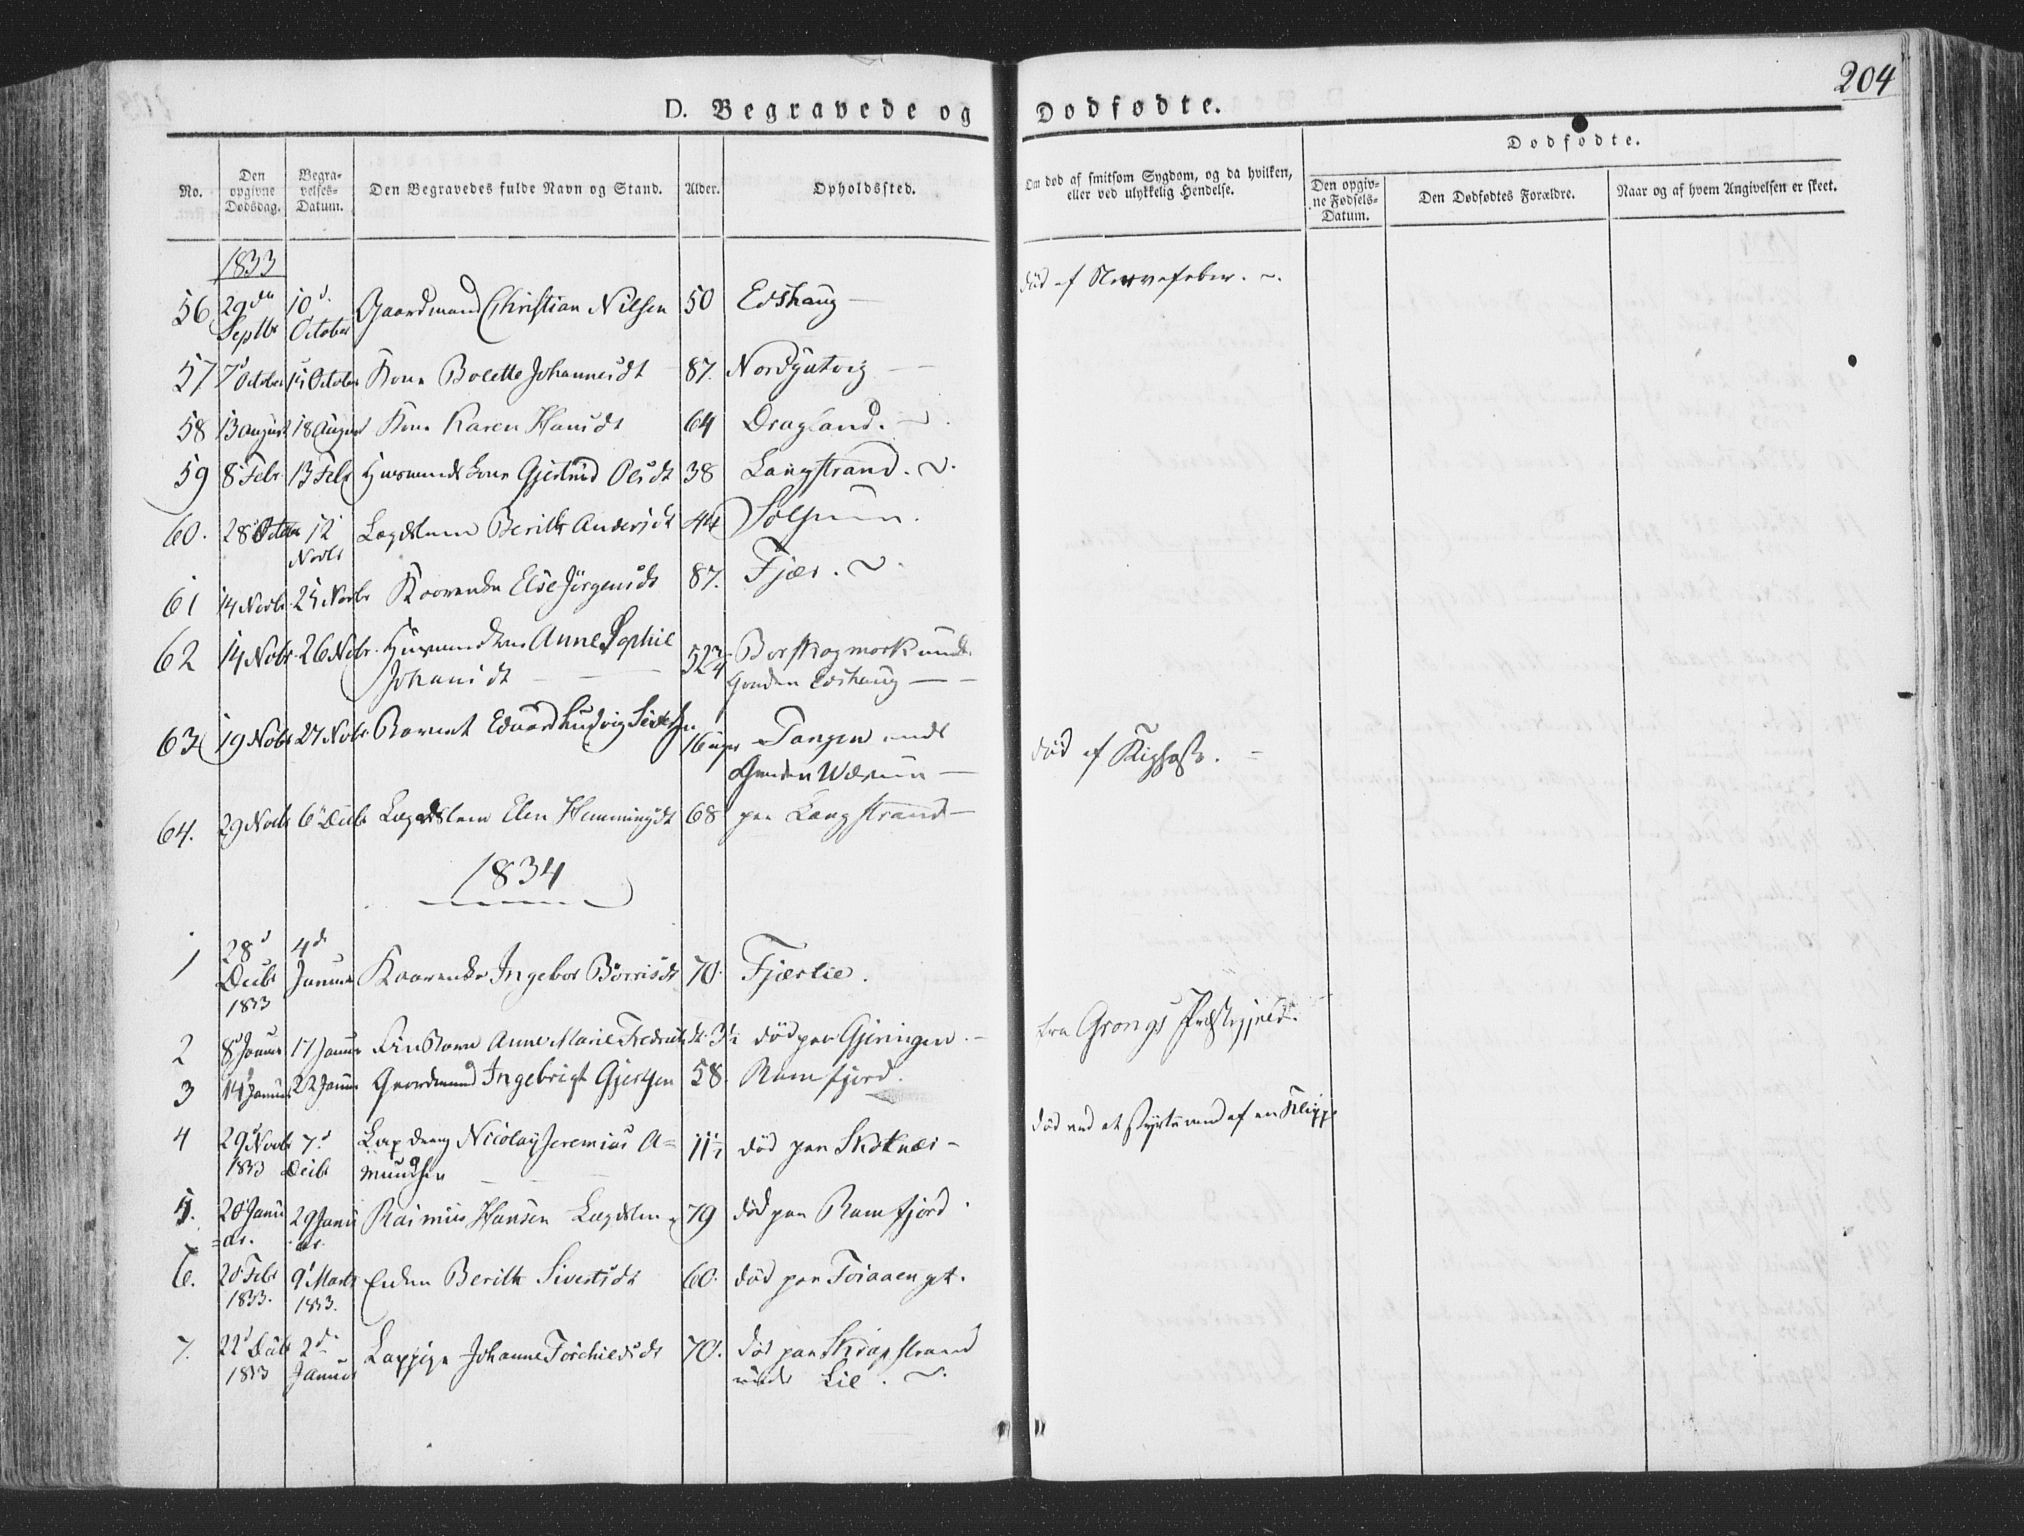 204
D. Begravede og Dødfødte.
Dødfødte.
No.
Den opgivne Dødsdag.
Begravelses-Datum.
Den Begravedes fulde Navn og Stand.
Alder.
Opholdssted.
Om død af smitsom Sygdom, og da hvilken, eller ved ulykkelig Hendelse.
Den opgivne Fødsels-Datum.
Den Dødfødtes Forældre.
Naar og af hvem Angivelsen er skeet.
1833
56 29de Septbr 10d. October Gaardmand Christian Nilsen 50 Edshaug død af Nervefeber.
57 7d October 15 October Kone Bolette Johannesdt 87.
58 13 August 18 August Kone Karen Hansdt 64 Dragland.
59 8d Febr 13 Febr Huusmands Kone Gjertrud Olsdt 38 Langstrand.
60. 28d Octbr 12 Novbr Lægdslem Berith Andersdt 44 Solsem.
61 14 Novbr 25 Novbr Kaarenke Else Jørgensdt 87. Fjær.
62 14 Nobr 26 Nobr Huusmandskone Anne Sophie
Johansdt 52 3/4 Borskogmark under
Gaarden Edshaug
63 19 Nobr 27 Nobr Barnet Eduard Ludvig Sivertsen 16 uger Tangen under
Gaarden Wærum død af Kighoste.
64. 29 Novbr 6d Decbr Lægdslem Elen Hemmingsdt 68 paa Langstrand
1834
1 28d Decbr 1833 4de Januar Kaarenke Ingebor Børrisdt 70. Fjærlie.
2 8d Januar 17 Januar Anne Marie Fredriksdt 3 1/2 død paa Gjeringen. fra Grongs Præstegjeld.
3 14d Januar 22 Januar Gaardmand Ingebrigt Gjertsen 58. Ramfjord.
4 29d Novbr 1833 7d Decbr Lapdreng Nicolay Jeremias A=
mundsen 11 1/2 død paa Skoknæs død ved at styrte ned af en Klippe
5. 20d Janu=ar. 29 Januar. Rasmus Hansen Lægdslem 79 død paa Ramfjord.
6. 20 Febr 1833. 9d Marts 1833. Enken Berith Sivertsdt 60. død paa
7. 22d Decbr 1833 2d Januar Lappige Johanne Torchildsdt 70. død paa Skrapstrand
under Lie.